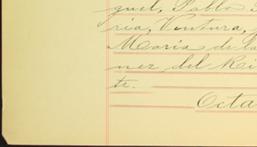 guel, Pablo
ria, Ventura,
Maria de la
nez del Ri
te.
Octa